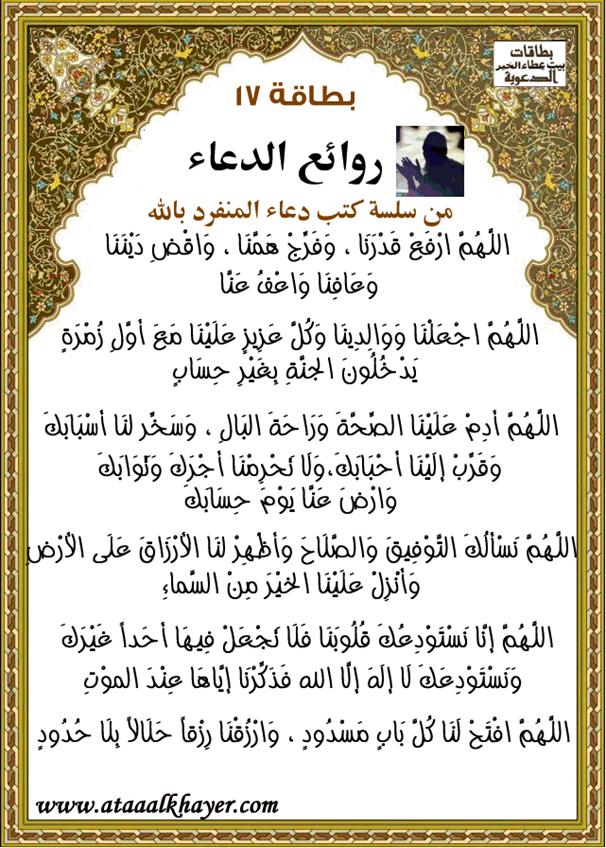 بطاقات
بيت عطاء الخير
الدعوية
بطاقة ١٧
روائع الدعاء
من سلسة كتب دعاء المنفرد بالله
اللَّهُمَّ ارْفَعْ قَدْرَنَا ، وَفَرِّجْ هَمَّنَا ، وَاقْضِ دَيْنَنَا
وَعَافِنَا وَاعْفُ عَنَّا
اللَّهُمَّ اجْعَلْنَا وَوَالِدِينَا وَكُلَّ عَزِيزٍ عَلَيْنَا مَعَ أوَّلِ زُمْرَةٍ
يَدْخُلُونَ الجنَّةِ بِغَيْرِ حِسَابٍ
اللَّهُمَّ أدِمْ عَلَيْنَا الصِّحَّةَ وَرَاحَةَ البَالِ ، وَسَخِّر لنَا أسْبَابَكَ
وَقَرِّبْ إلَيْنَا أحْبَابَكَ،وَلَا تَحْرِمْنَا أجْرَكَ وَثَوَابَكَ
وَارْضَ عَنَّا يَوْمَ حِسَابَكَ
اللَّهُمَّ نَسْألُكَ التَّوْفِيقَ وَالصَّلَاحَ وَأظْهِرْ لنَا الأرْزَاقَ عَلَى الأرْضِ
وَأنْزِلْ عَلَيْنَا الخيْرَ مِنْ السَّماءِ
اللَّهُمَّ إنَّا نَسْتَوْدِعُكَ قُلُوبَنَا فَلَا تَجْعَلْ فِيهَا أحَداً غَيْرَكَ
وَنَسْتَوْدِعَكَ لَا إلَهَ إلَّا الله فَذَكِّرْنَا إيَّاهَا عِنْدَ الموْتِ
اللَّهُمَّ افْتَحْ لَنَا كُلَّ بَابٍ مَسْدُودٍ ، وَارْزُقْنَا رِزْقاً حَلَالاً بِلَا حُدُودٍ
www.ataaalkhayer.com